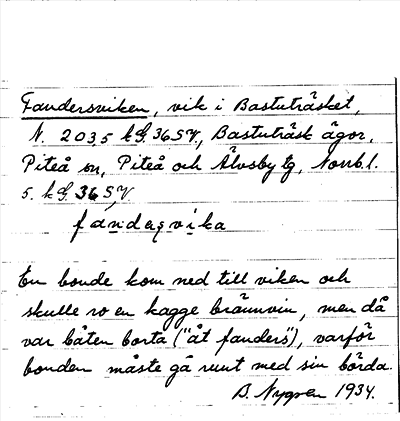 Fandersviken, vik i Bastuträsket,
N. 2035 kG. 36 SV, Bastuträsk ägor,
Piteå sn, Piteå och Älvsby tg, Norrb l.
5. kG. 36 SV
fandesvika
En bonde kom ned till viken och
skulle ro en kagge brännvin, men då
var båten borta ("åt fanders"), varför
bonden måste gå runt med sin börda.
B. Nygren 1934.